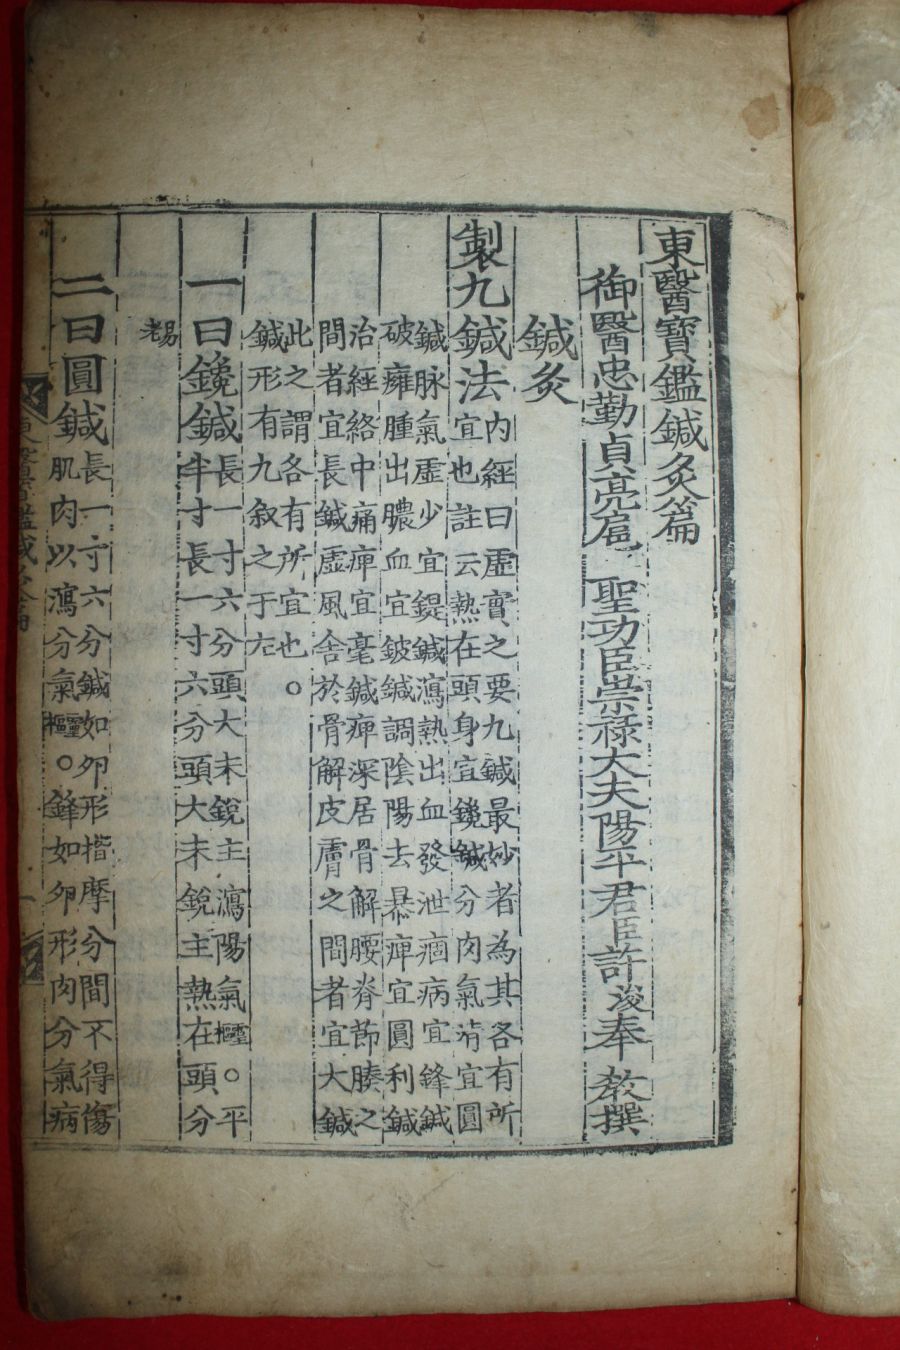 東醫寶鑑鍼灸篇
御醫忠勤貞亮扈 聖功臣崇祿大夫陽平君臣許浚奉 敎撰
鍼灸
製九鍼法
內經曰虛實之要九鍼最妙者爲其各有所
宜也註云熱在頭身宜鑱鍼分肉氣滿宜圓
鍼脉氣虛少宜鍉鍼瀉熱出血發泄痼病宜鋒鍼
破癰腫出膿血宜鈹鍼調陰陽去暴痺宜圓利鍼
治經絡中痛痺宜毫鍼痺深居骨解腰脊節腠之
間者宜長鍼虛風舍於骨解皮膚之間者宜大鍼
此之謂各有所宜也○
鍼形有九叙之于左
一曰鑱鍼
長一寸六分頭大末銳主瀉陽氣靈樞○平
半寸長一寸六分頭大末銳主熱在頭分
易老
二曰圓鍼
長一寸六分鍼如卵形揩摩分間不得傷
肌肉以瀉分氣靈樞○鋒如卵形肉分氣病